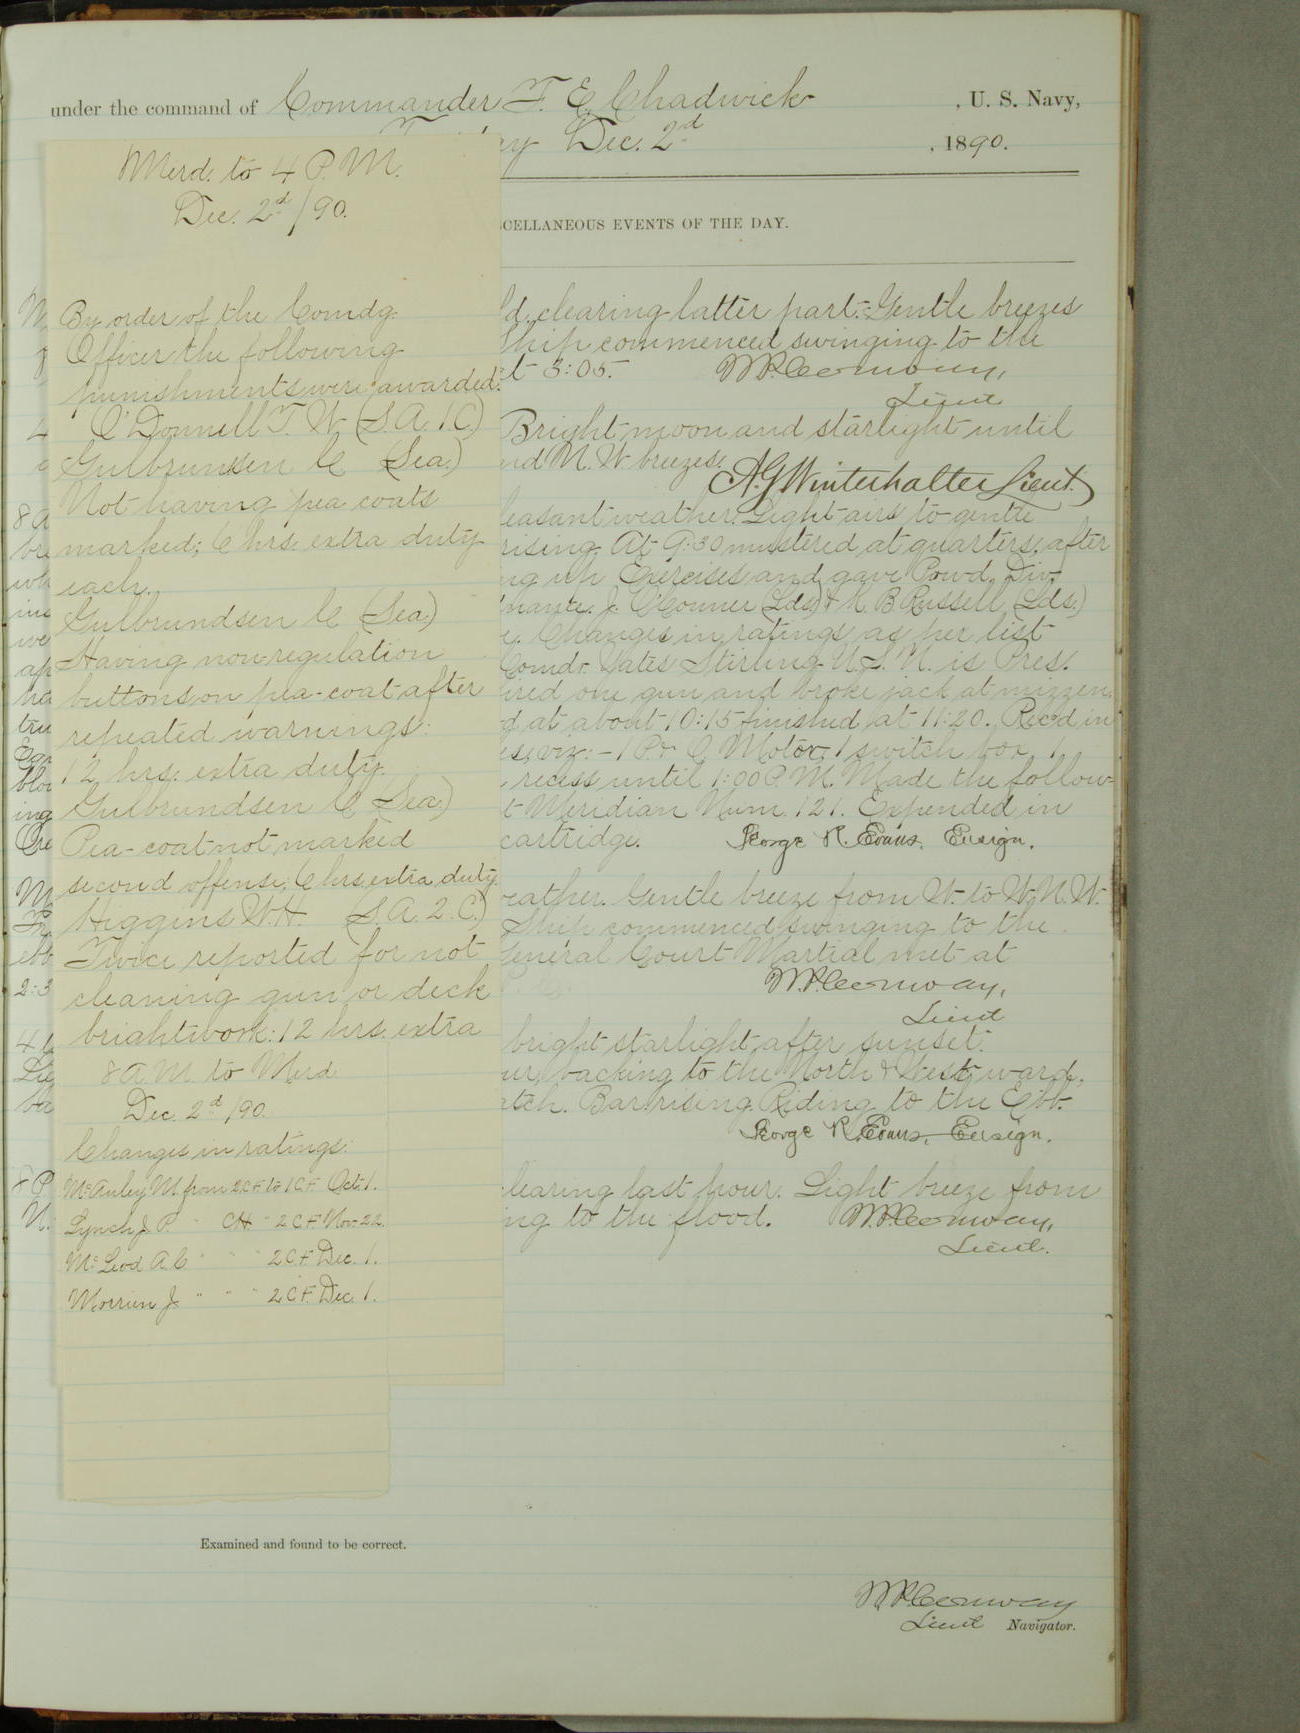 under the command of Commander F. E. Chadwick , U. S. Navy,
Dec. 2d , 1890.
CELLANEOUS EVENTS OF THE DAY.
Merid. to 4 P.M.
Dec. 2d/90.
By order of the Comdg.
Officer the following
punishments were awarded:
O'Donnell T. W. (S.A. 1.C.)
Gulbrundsen C (Sea.)
Not having pea coats
marked; 6 hrs. extra duty
each.
Gulbrundsen C (Sea.)
Having non-regulation
buttons on pea-coat after
repeated warnings:
12 hrs. extra duty.
Gulbrundsen C (Sea.)
Pea-coat not marked
second offense; 6 hrs. extra duty.
Higgins W.H. (S.A. 2.C.)
Twice reported for not
cleaning gun or deck
brightwork: 12 hrs. extra
8 A M to Merid
Dec. 2d/90.
Changes in ratings:
McAuley M. from 2 C.F. to 1 C.F. Oct. 1.
Lynch J. P. " CH " 2 C.F. Nov. 22.
McLeod A. C. " " " 2 C.F. Dec. 1.
Morrisn J. " " " 2 C.F. Dec. 1.
clearing latter part. Gentle breezes
Ship commenced swinging to the
3:05. W.P. Conway,
Lieut
Bright moon and starlight until
nd N. W. breezes. A.G. Winterhalter Lieut.
easant weather. Light airs to gentle
rising. At 9:30 mustered at quarters, after
Exercises and gave Powd. Div.
J. O'Conner (Lds) & H. B. Russell (Lds.)
Changes in ratings as per list
Comdr. Yates Stirling U.S.N. is Pres.
ired one gun and broke jack at mizzen.
d at about 10:15 finished at 11:20. Rec'd in
viz:- 1 P. & C. Motor, 1 switch box, 1.
recess until 1:00 P.M. Made the follow-
t Meridian Num. 121. Expended in
cartridge. George R. Evans, Ensign.
eather. Gentle breeze from W. to W.N.W.
Ship commenced swinging to the
General Court Martial met at
W.P. Conway,
Lieut
bright starlight after sunset.
our, backing to the North & Westward.
atch. Bar. rising. Riding to the Ebb.
George R. Evans, Ensign.
clearing last hour. Light breeze from
ng to the flood. W.P. Conway,
Lieut.
Examined and found to be correct.
W.P. Conway
Lieut Navigator.